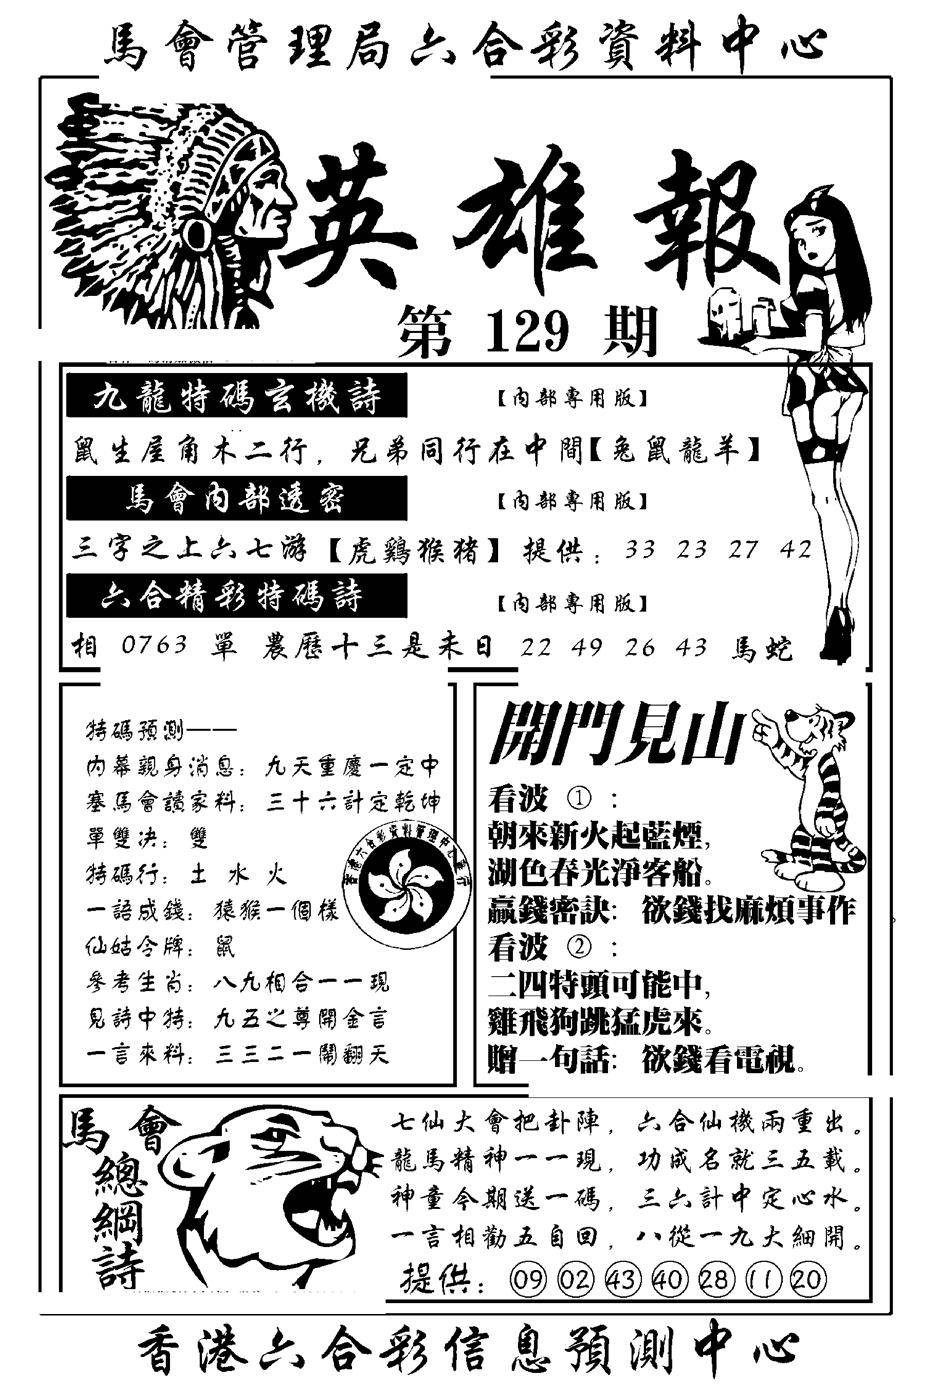 馬會管理局六合彩資料中心
英雄報
第 129 期
九龍特碼玄機詩 【內部專用版】
鼠生屋角木二行，兄弟同行在中間【兔鼠龍羊】
馬會內部透密 【內部專用版】
三字之上六七游【虎鷄猴猪】提供：33 23 27 42
六合精彩特碼詩 【內部專用版】
相 0763 單 農歷十三是未日 22 49 26 43 馬蛇
特碼預測——
內幕親身消息：九天重慶一定中
塞馬會讀家料：三十六計定乾坤
單雙决：雙
特碼行：土 水 火
一語成錢：猿猴一個樣
仙姑令牌：鼠
參考生肖：八九相合一一現
見詩中特：九五之尊開金言
一言來料：三三二一鬧翻天
香港六合彩資料管理中心發行
開門見山
看波①：
朝來新火起藍煙，
湖色春光淨客船。
贏錢密訣：欲錢找麻煩事作
看波②：
二四特頭可能中，
雞飛狗跳猛虎來。
贈一句話：欲錢看電視。
馬會總綱詩
七仙大會把卦陣，六合仙機兩重出。
龍馬精神一一現，功成名就三五載。
神童今期送一碼，三六計中定心水。
一言相勸五自回，八從一九大細開。
提供：09 02 43 40 28 11 20
香港六合彩信息預測中心